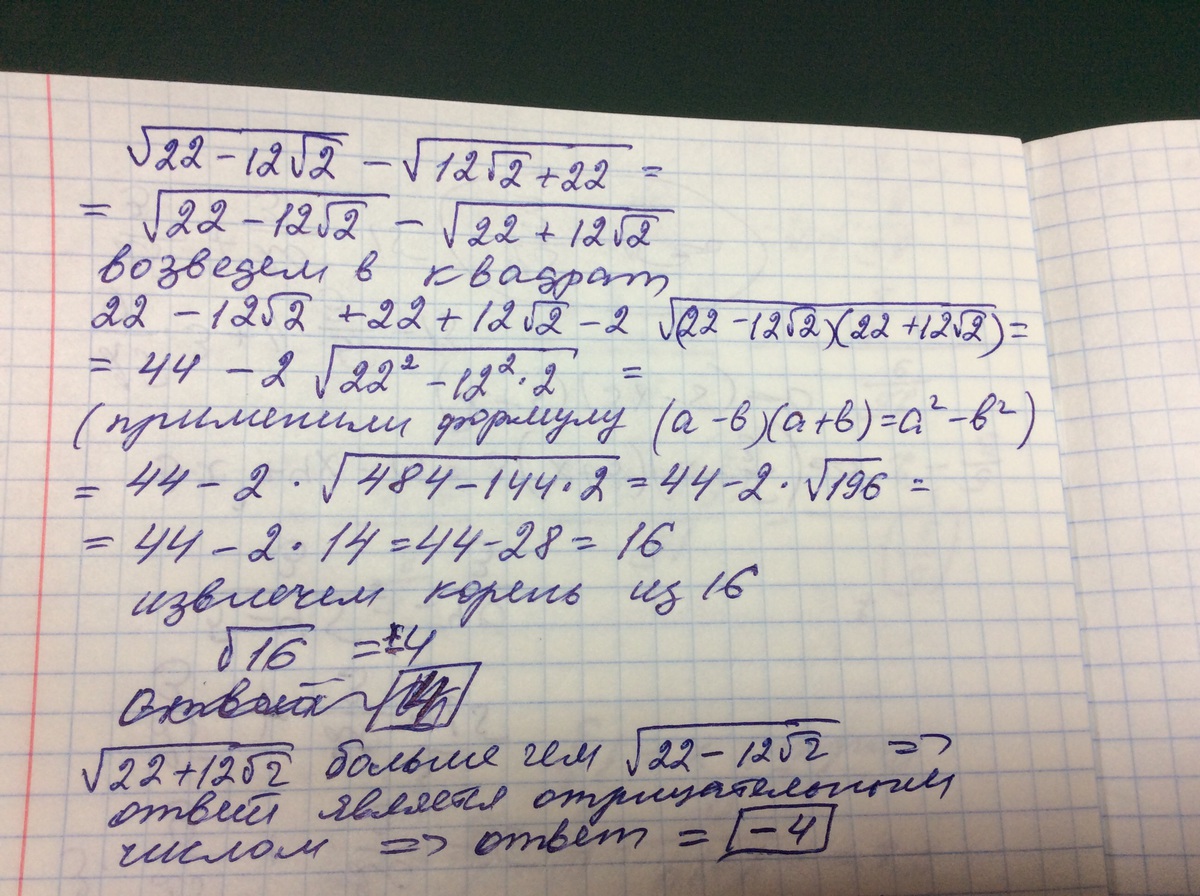 √22 - 12√2 - √12√2 + 22 =
= √22 - 12√2 - √22 + 12√2
возведем в квадрат
22 - 12√2 + 22 + 12√2 - 2 √(22 - 12√2)(22 + 12√2) =
= 44 - 2 √22² - 12² · 2 =
(применили формулу (а - в)(а + в) = а² - в²)
= 44 - 2 · √484 - 144 · 2 = 44 - 2 · √196 =
= 44 - 2 · 14 = 44 - 28 = 16
извлечем корень из 16
√16 = ±4
√22 + 12√2 больше чем √22 - 12√2 =>
ответ является отрицательным
числом => ответ = -4